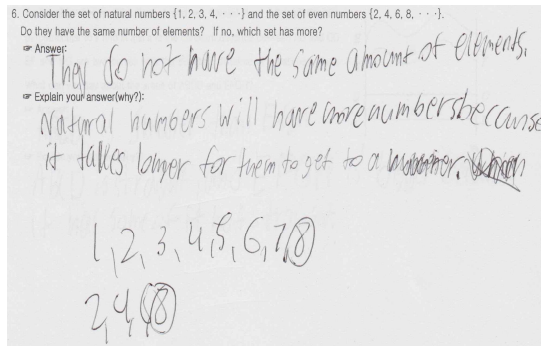 6. Consider the set of natural numbers {1, 2, 3, 4, · · ·} and the set of even numbers {2, 4, 6, 8, · · ·}.
Do they have the same number of elements? If no, which set has more?
☞ Answer:
They do not have the same amount of elements.
☞ Explain your answer(why?):
Natural numbers will have more numbers because
it takes longer for them to get to a number.
1, 2, 3, 4, 5, 6, 7, 8
2, 4, 6, 8